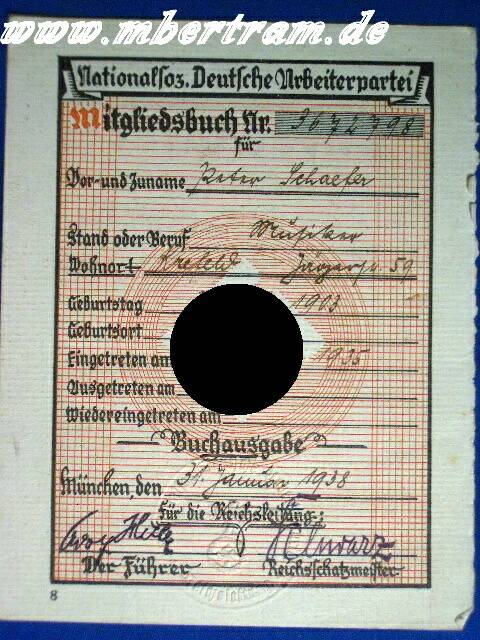 www.mbertram.de
Nationalsoz. Deutsche Arbeiterpartei
Mitgliedsbuch Nr. 3672798
für
Vor- und Zuname Peter Schaefer
Stand oder Beruf Musiker
Wohnort Krefeld Jägerstr. 59
Geburtstag 1903
Geburtsort
Eingetreten am 1935
Ausgetreten am
Wiedereingetreten am
Buchausgabe
München, den 31. Januar 1938
Für die Reichsleitung:
Der Führer Reichsschatzmeister
8